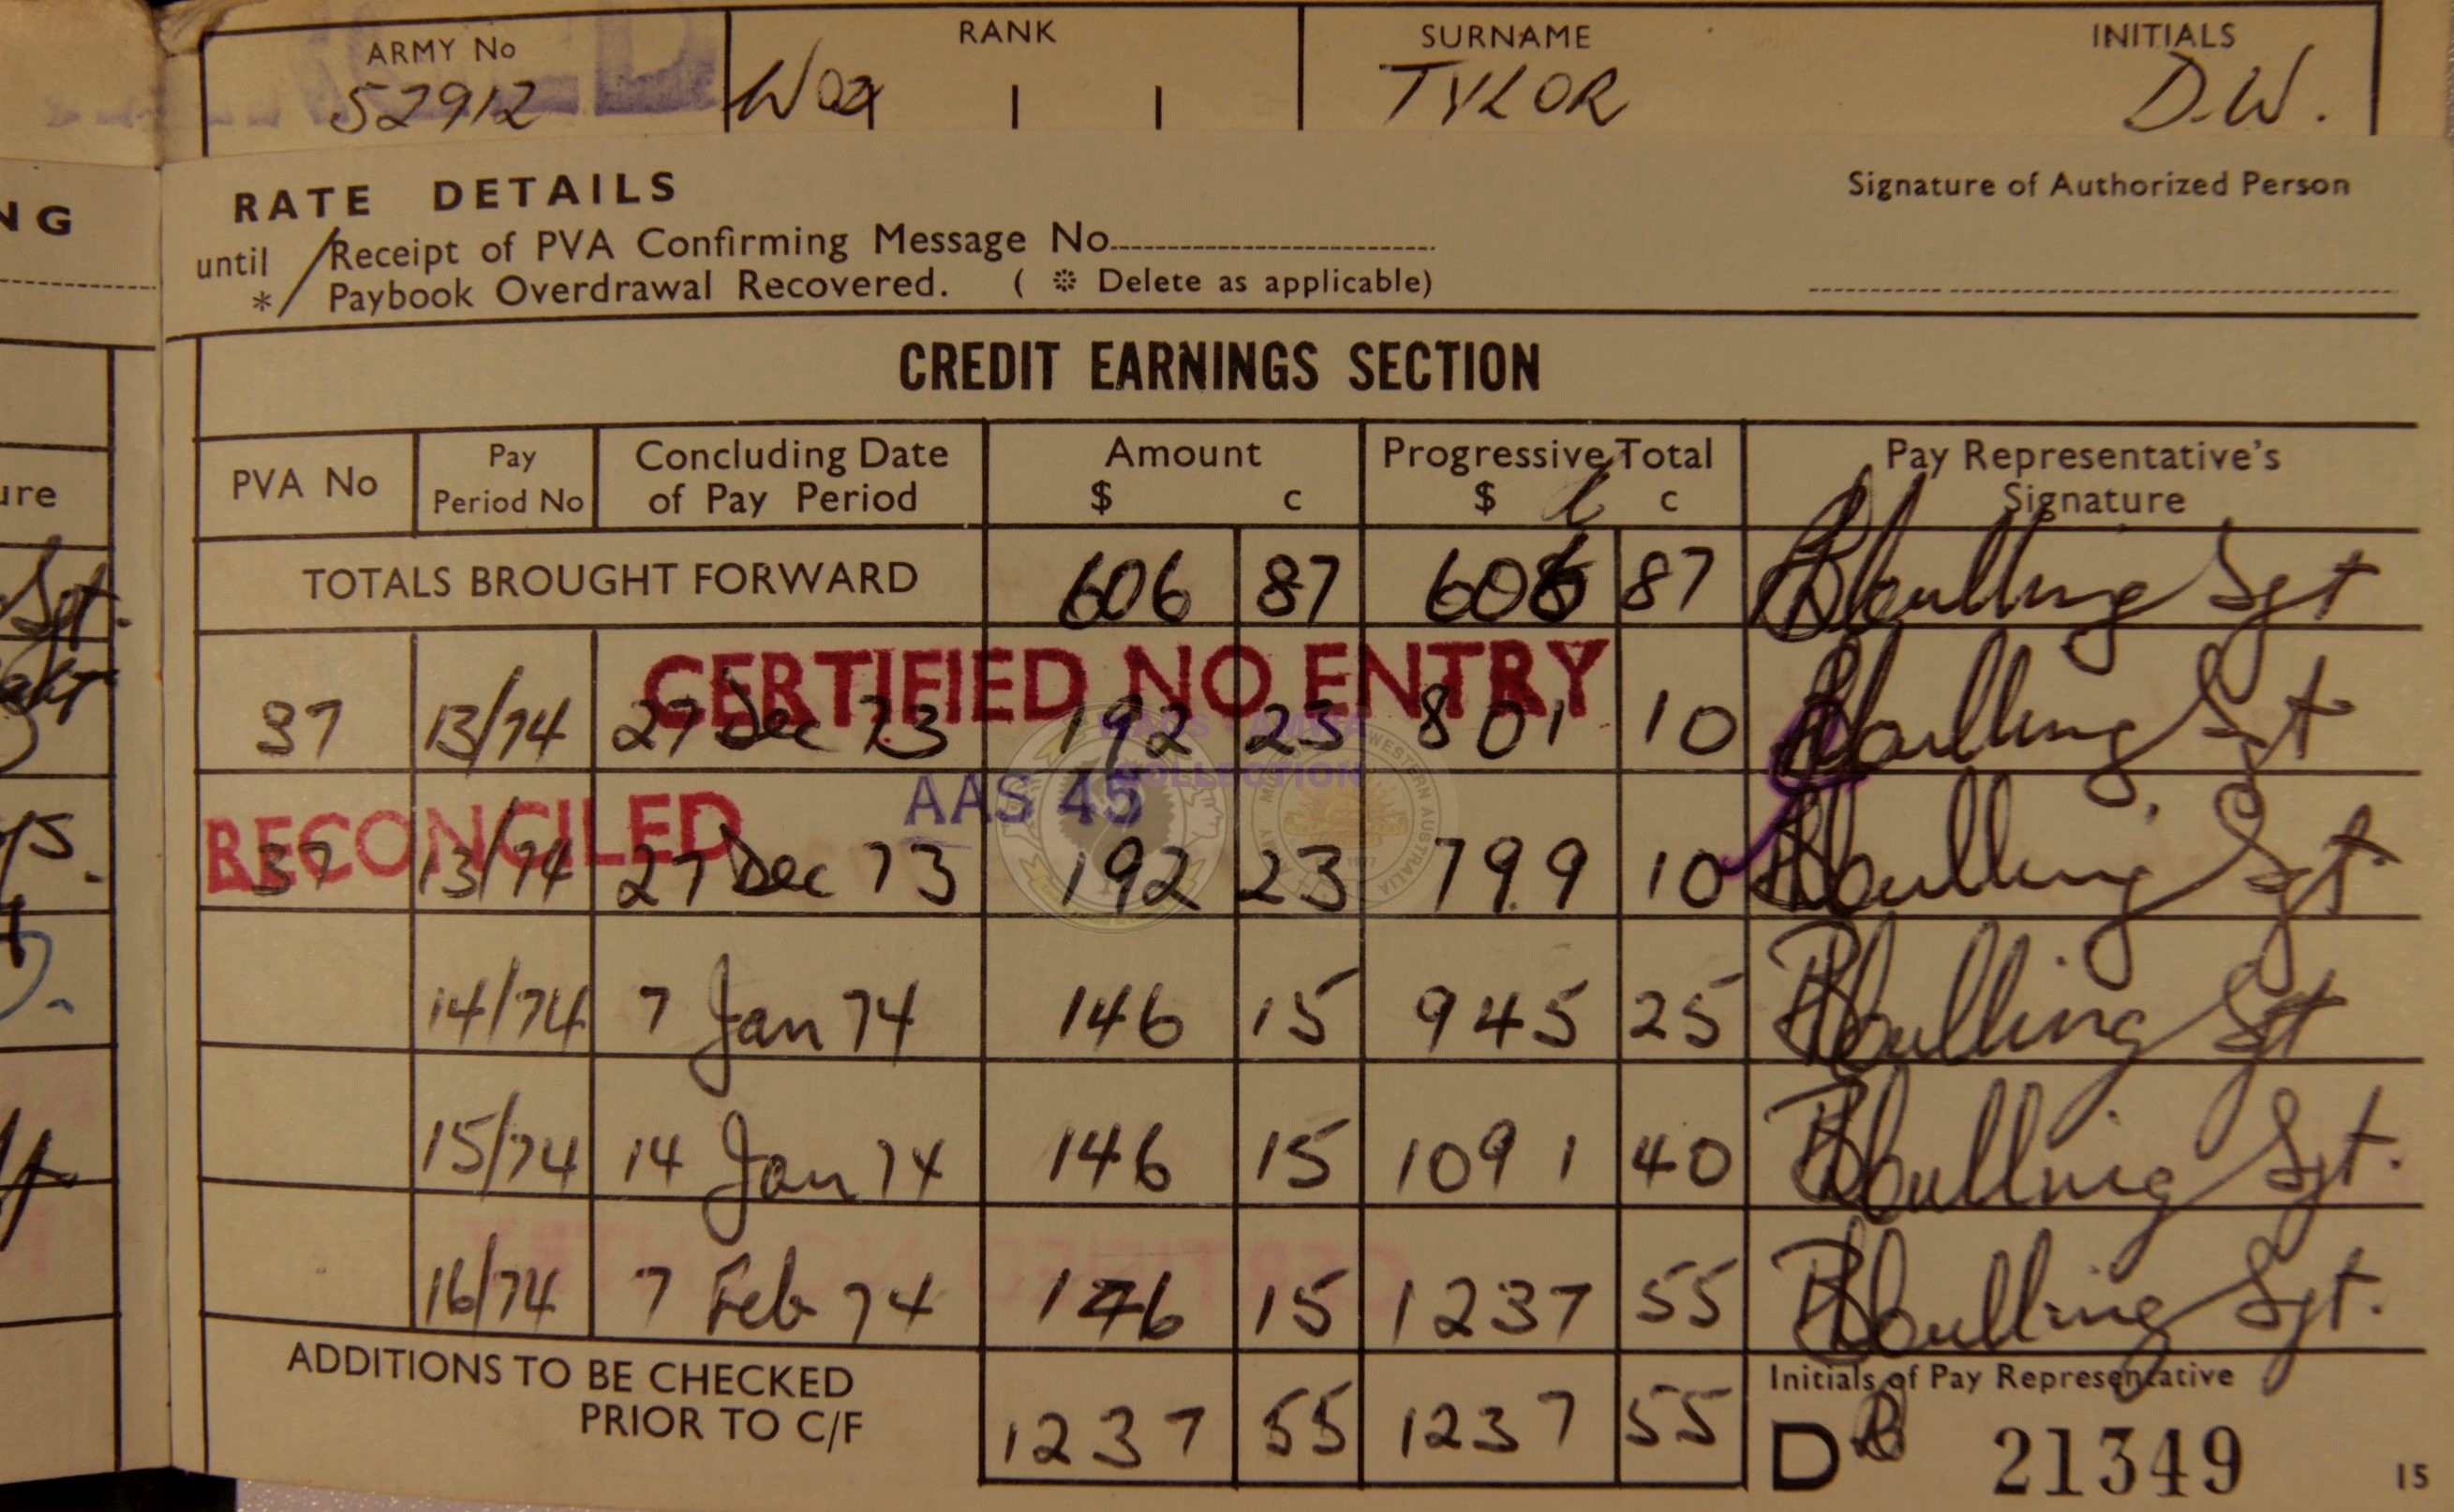 ARMY No RANK SURNAME INITIALS
52912 TYLOR D.W.
NG RATE DETAILS Signature of Authorized Person
until / Receipt of PVA Confirming Message No
* / Paybook Overdrawal Recovered. ( * Delete as applicable)
CREDIT EARNINGS SECTION
PVA No Pay Period No Concluding Date of Pay Period Amount $ c Progressive Total $ c Pay Representative's Signature
ure
TOTALS BROUGHT FORWARD 606 87 606 87 Sgt
Sgt.
CERTIFIED NO ENTRY
37 13/74 27 Dec 73 192 23 801 10 Sgt
RECONCILED AAS 45
COLLECTION
WESTERN AUSTRALIA
37 13/74 27 Dec 73 192 23 799 10 Sgt.
14/74 7 Jan 74 146 15 945 25 Sgt
15/74 14 Jan 74 146 15 1091 40 Sgt.
16/74 7 Feb 74 146 15 1237 55 Sgt.
ADDITIONS TO BE CHECKED
PRIOR TO C/F 1237 55 1237 55
Initials of Pay Representative
D 21349
15